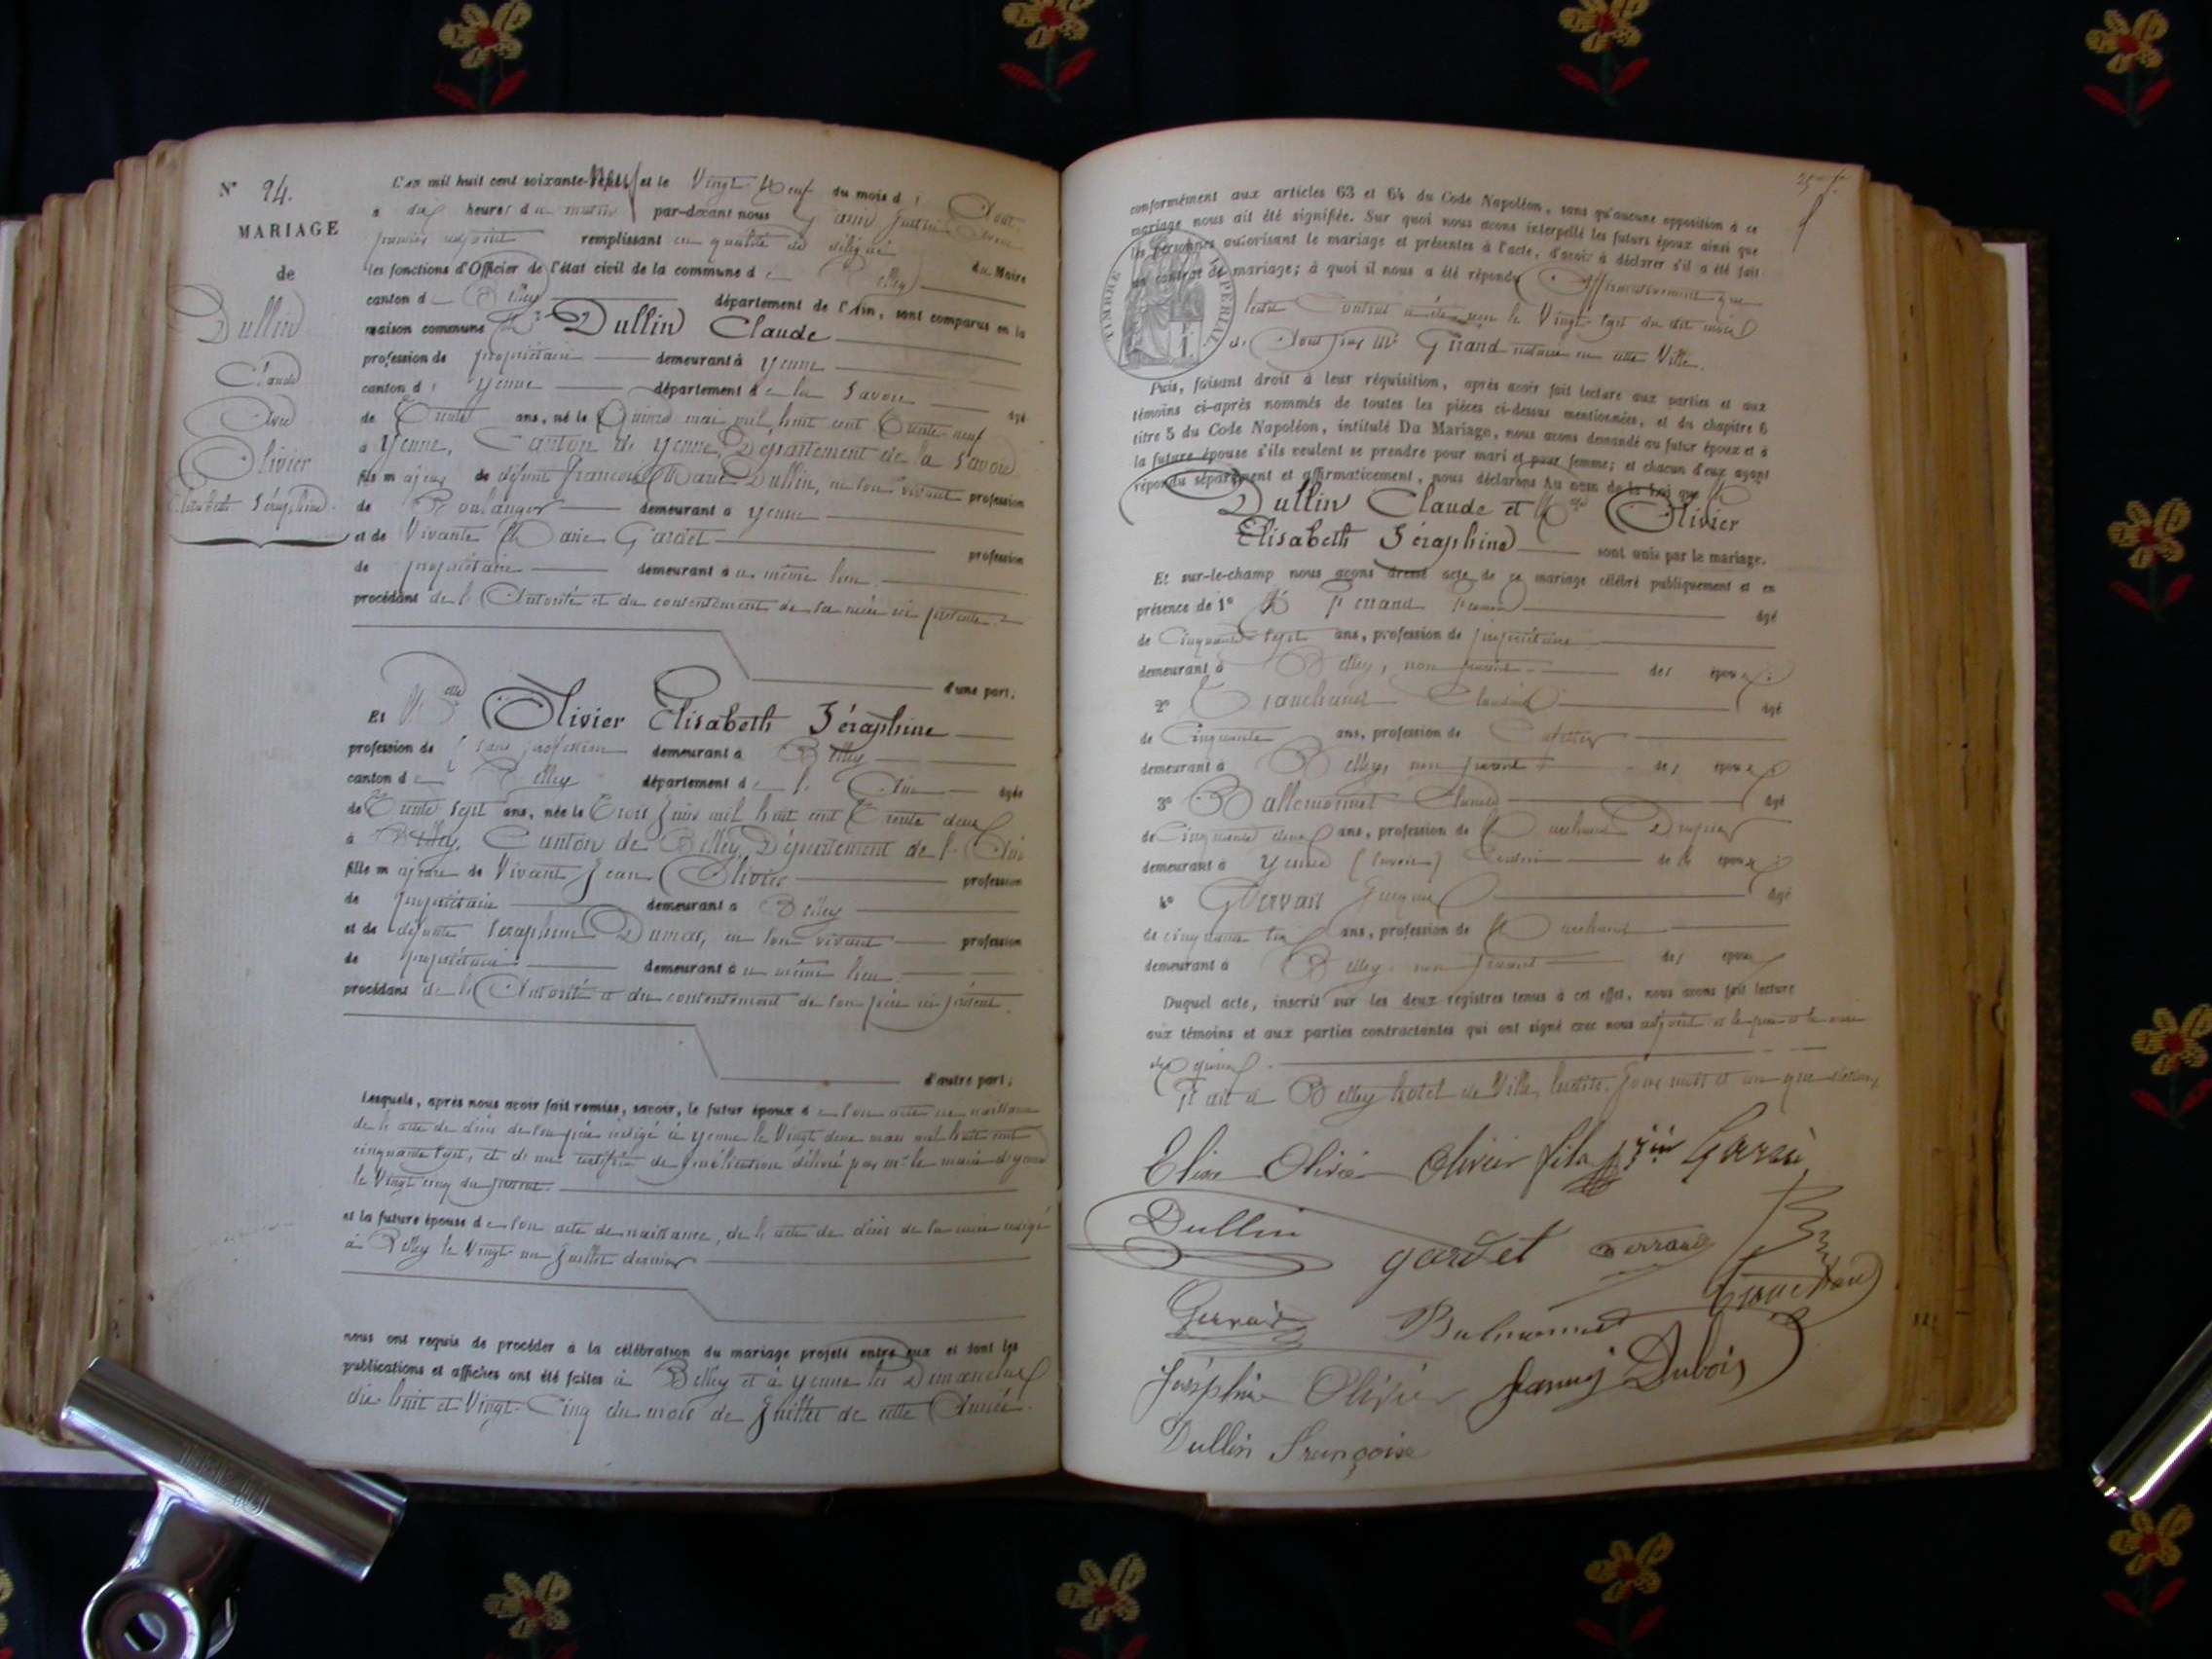 N° 24.
MARIAGE
de
Dullin
Claude
Avec
Olivier
Elisabeth Séraphine
L'an mil huit cent soixante-neuf et le Vingt-Neuf du mois d' Aout
à dix heures du matin par-devant nous
premier adjoint remplissant en qualité de délégué du Maire
les fonctions d'Officier de l'état civil de la commune de Belley
canton de Belley département de l'Ain, sont comparus en la
maison commune Mr Dullin Claude
profession de propriétaire demeurant à Yenne
canton d' Yenne département de la Savoie âgé
de Trente ans, né le Quinze mai mil huit cent Trente-neuf
à Yenne, Canton de Yenne, Département de la Savoie
fils majeur de défunt François Marie Dullin, en son vivant profession
de Boulanger demeurant à Yenne
et de Vivante Marie Gardet profession
de propriétaire demeurant au même lieu
procédant de l'Autorité et du consentement de sa mère ici présente.
d'une part;
Et Melle Olivier Elisabeth Séraphine
profession de sans profession demeurant à Belley
canton de Belley département de l'Ain âgée
de Trente sept ans, née le Trois Juin mil huit cent Trente deux
à Belley, Canton de Belley, Département de l'Ain
fille majeure de Vivant Jean Olivier profession
de propriétaire demeurant à Belley
et de défunte Séraphine Dumas, en son vivant profession
de propriétaire demeurant au même lieu
procédant de l'Autorité et du consentement de son père ici présent.
d'autre part;
Lesquels, après nous avoir fait remise, savoir, le futur époux de son acte de naissance
de l'acte de décès de son père rédigé à Yenne le Vingt deux mars mil huit cent
cinquante sept, et d'un certificat de publication délivré par Mr le maire d'Yenne
le Vingt cinq du présent.
et la future épouse de son acte de naissance, de l'acte de décès de sa mère rédigé
à Belley le Vingt-un Juillet dernier
nous ont requis de procéder à la célébration du mariage projeté entre eux et dont les
publications et affiches ont été faites à Belley et à Yenne les Dimanches
dix huit et Vingt-Cinq du mois de Juillet de cette Année.
conformément aux articles 63 et 64 du Code Napoléon, sans qu'aucune opposition à ce
mariage nous ait été signifiée. Sur quoi nous avons interpellé les futurs époux ainsi que
les personnes autorisant le mariage et présentes à l'acte, d'avoir à déclarer s'il a été fait
un contrat de mariage; à quoi il nous a été répondu Affirmativement que
leur Contrat a été reçu le Vingt-sept du dit mois
d'Aout par Me Girand notaire en cette Ville.
TIMBRE IMPÉRIAL
Puis, faisant droit à leur réquisition, après avoir fait lecture aux parties et aux
témoins ci-après nommés de toutes les pièces ci-dessus mentionnées, et du chapitre 6
titre 5 du Code Napoléon, intitulé Du Mariage, nous avons demandé au futur époux et à
la future épouse s'ils veulent se prendre pour mari et pour femme; et chacun d'eux ayant
répondu séparément et affirmativement, nous déclarons Au nom de la Loi que Mr
Dullin Claude et Melle Olivier
Elisabeth Séraphine sont unis par le mariage.
Et sur-le-champ nous avons dressé acte de ce mariage célébré publiquement et en
présence de 1° Mr Ferrand âgé
de Cinquante-sept ans, profession de propriétaire
demeurant à Belley, non parent des époux
2° Tranchand Claude âgé
de Cinquante ans, profession de Cafetier
demeurant à Belley, non parent des époux
3° Ballemonnet Claude âgé
de Cinquante deux ans, profession de Marchand Drapier
demeurant à Yenne (Savoie) Cousin de l' époux
4° Gervais Jacques âgé
de cinquante six ans, profession de Marchand
demeurant à Belley non parent des époux
Duquel acte, inscrit sur les deux registres tenus à cet effet, nous avons fait lecture
aux témoins et aux parties contractantes qui ont signé avec nous adjoint et le père et la mère
des époux.
Fait à Belley hotel de Ville, lesdits Jour mois et an que dessus
Elise Olivier Olivier fils
Dullin gardet Ferrand
Gervais Balmonnet Tranchand
Joséphine Olivier Fanny Dubois
Dullin Françoise